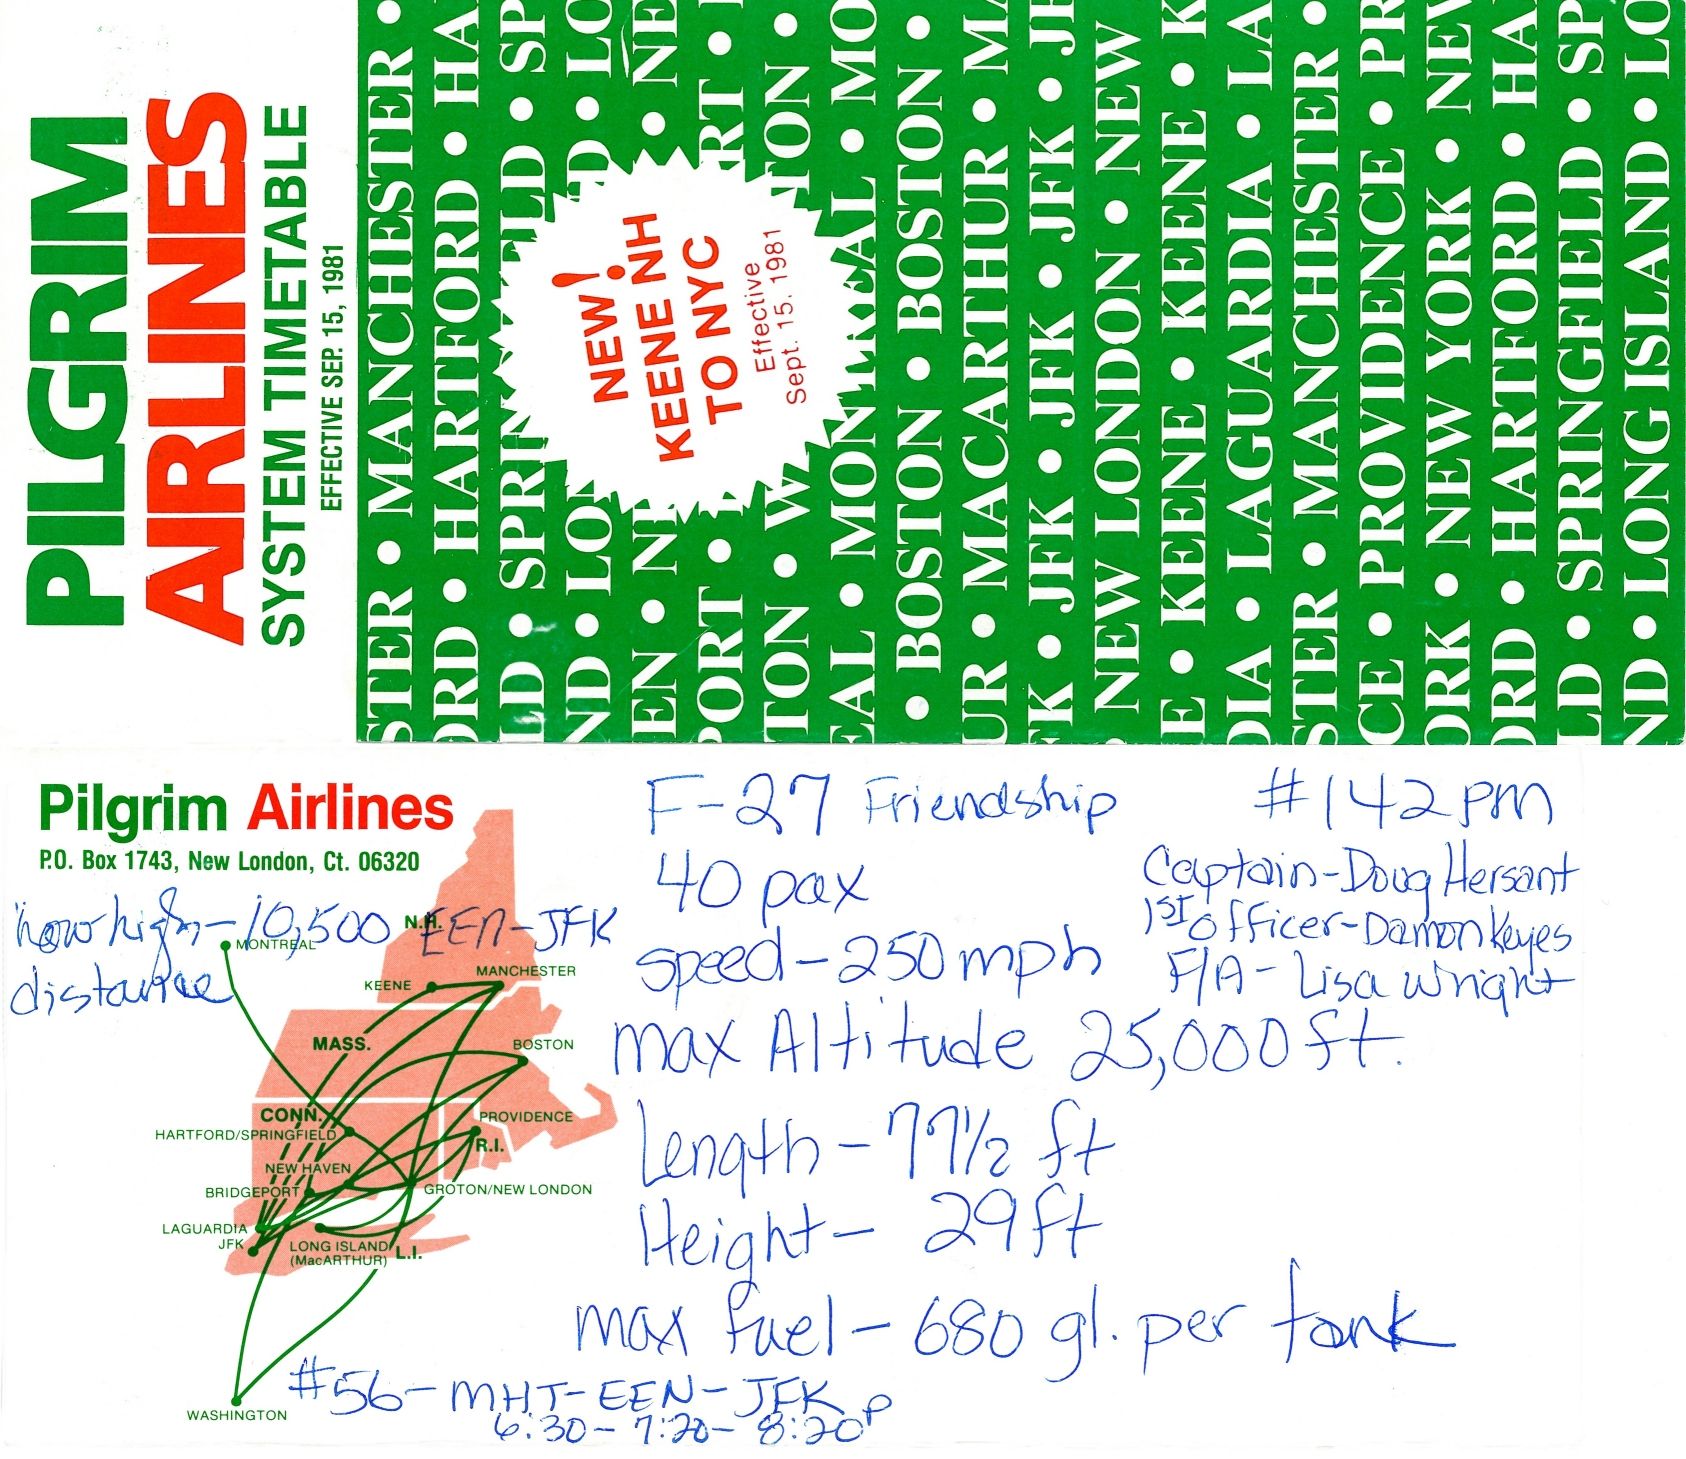 PILGRIM
AIRLINES
SYSTEM TIMETABLE
EFFECTIVE SEP. 15, 1981
STER • MANCHESTER •
ORD • HARTFORD • HA
LD • SPRI ELD • SP
ND • LO D • LO
EN • NE • NE
PORT • RT •
TON • W TON •
EAL • MONTREAL • MO
• BOSTON • BOSTON •
UR • MACARTHUR • MA
K • JFK • JFK • JFK • JF
NEW LONDON • NEW
E • KEENE • KEENE • K
DIA • LAGUARDIA • LA
STER • MANCHESTER •
CE • PROVIDENCE • PR
ORK • NEW YORK • NEW
ORD • HARTFORD • HA
LD • SPRINGFIELD • SP
ND • LONG ISLAND • LO
NEW!
KEENE NH
TO NYC
Effective
Sept. 15. 1981
Pilgrim Airlines
P.O. Box 1743, New London, Ct. 06320
how high - 10,500 EEN-JFK
distance
N.H.
MONTREAL
MANCHESTER
KEENE
MASS.
BOSTON
CONN.
PROVIDENCE
HARTFORD/SPRINGFIELD
R.I.
NEW HAVEN
BRIDGEPORT
GROTON/NEW LONDON
LAGUARDIA
JFK
LONG ISLAND
(MacARTHUR)
L.I.
WASHINGTON
F-27 Friendship
#142 pm
40 pax
Captain-Doug Hersant
1ST Officer-Damon Keyes
F/A - Lisa Wright
speed - 250 mph
max Altitude 25,000 ft.
Length - 77 1/2 ft
Height - 29 ft
max fuel - 680 gl. per tank
#56 - MHT-EEN-JFK
6:30 - 7:20 - 8:20 p